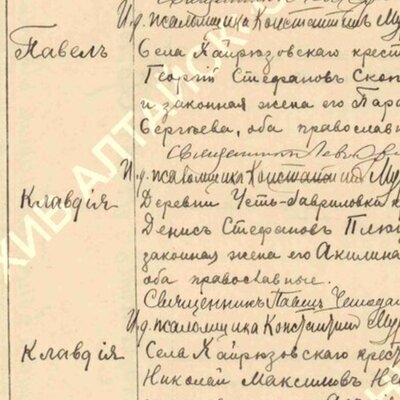 И.д. псаломщика Константинъ Му
Павелъ
Села Хайрюзовскаго крест
Георгій Стефановъ Скоп
и законная жена его Пара
Сергѣева, оба православн
Священникъ
И.д. псаломщика Константинъ Мур
Клавдія
Деревни Усть-Гавриловки кр
Денисъ Стефановъ Плю
законная жена его Акилина
оба православные.
Священникъ Павелъ
И.д. псаломщика Константинъ Мур
Клавдія
Села Хайрюзовскаго крест
Николай Максимовъ Не
ХИВ АЛТАЙСКО